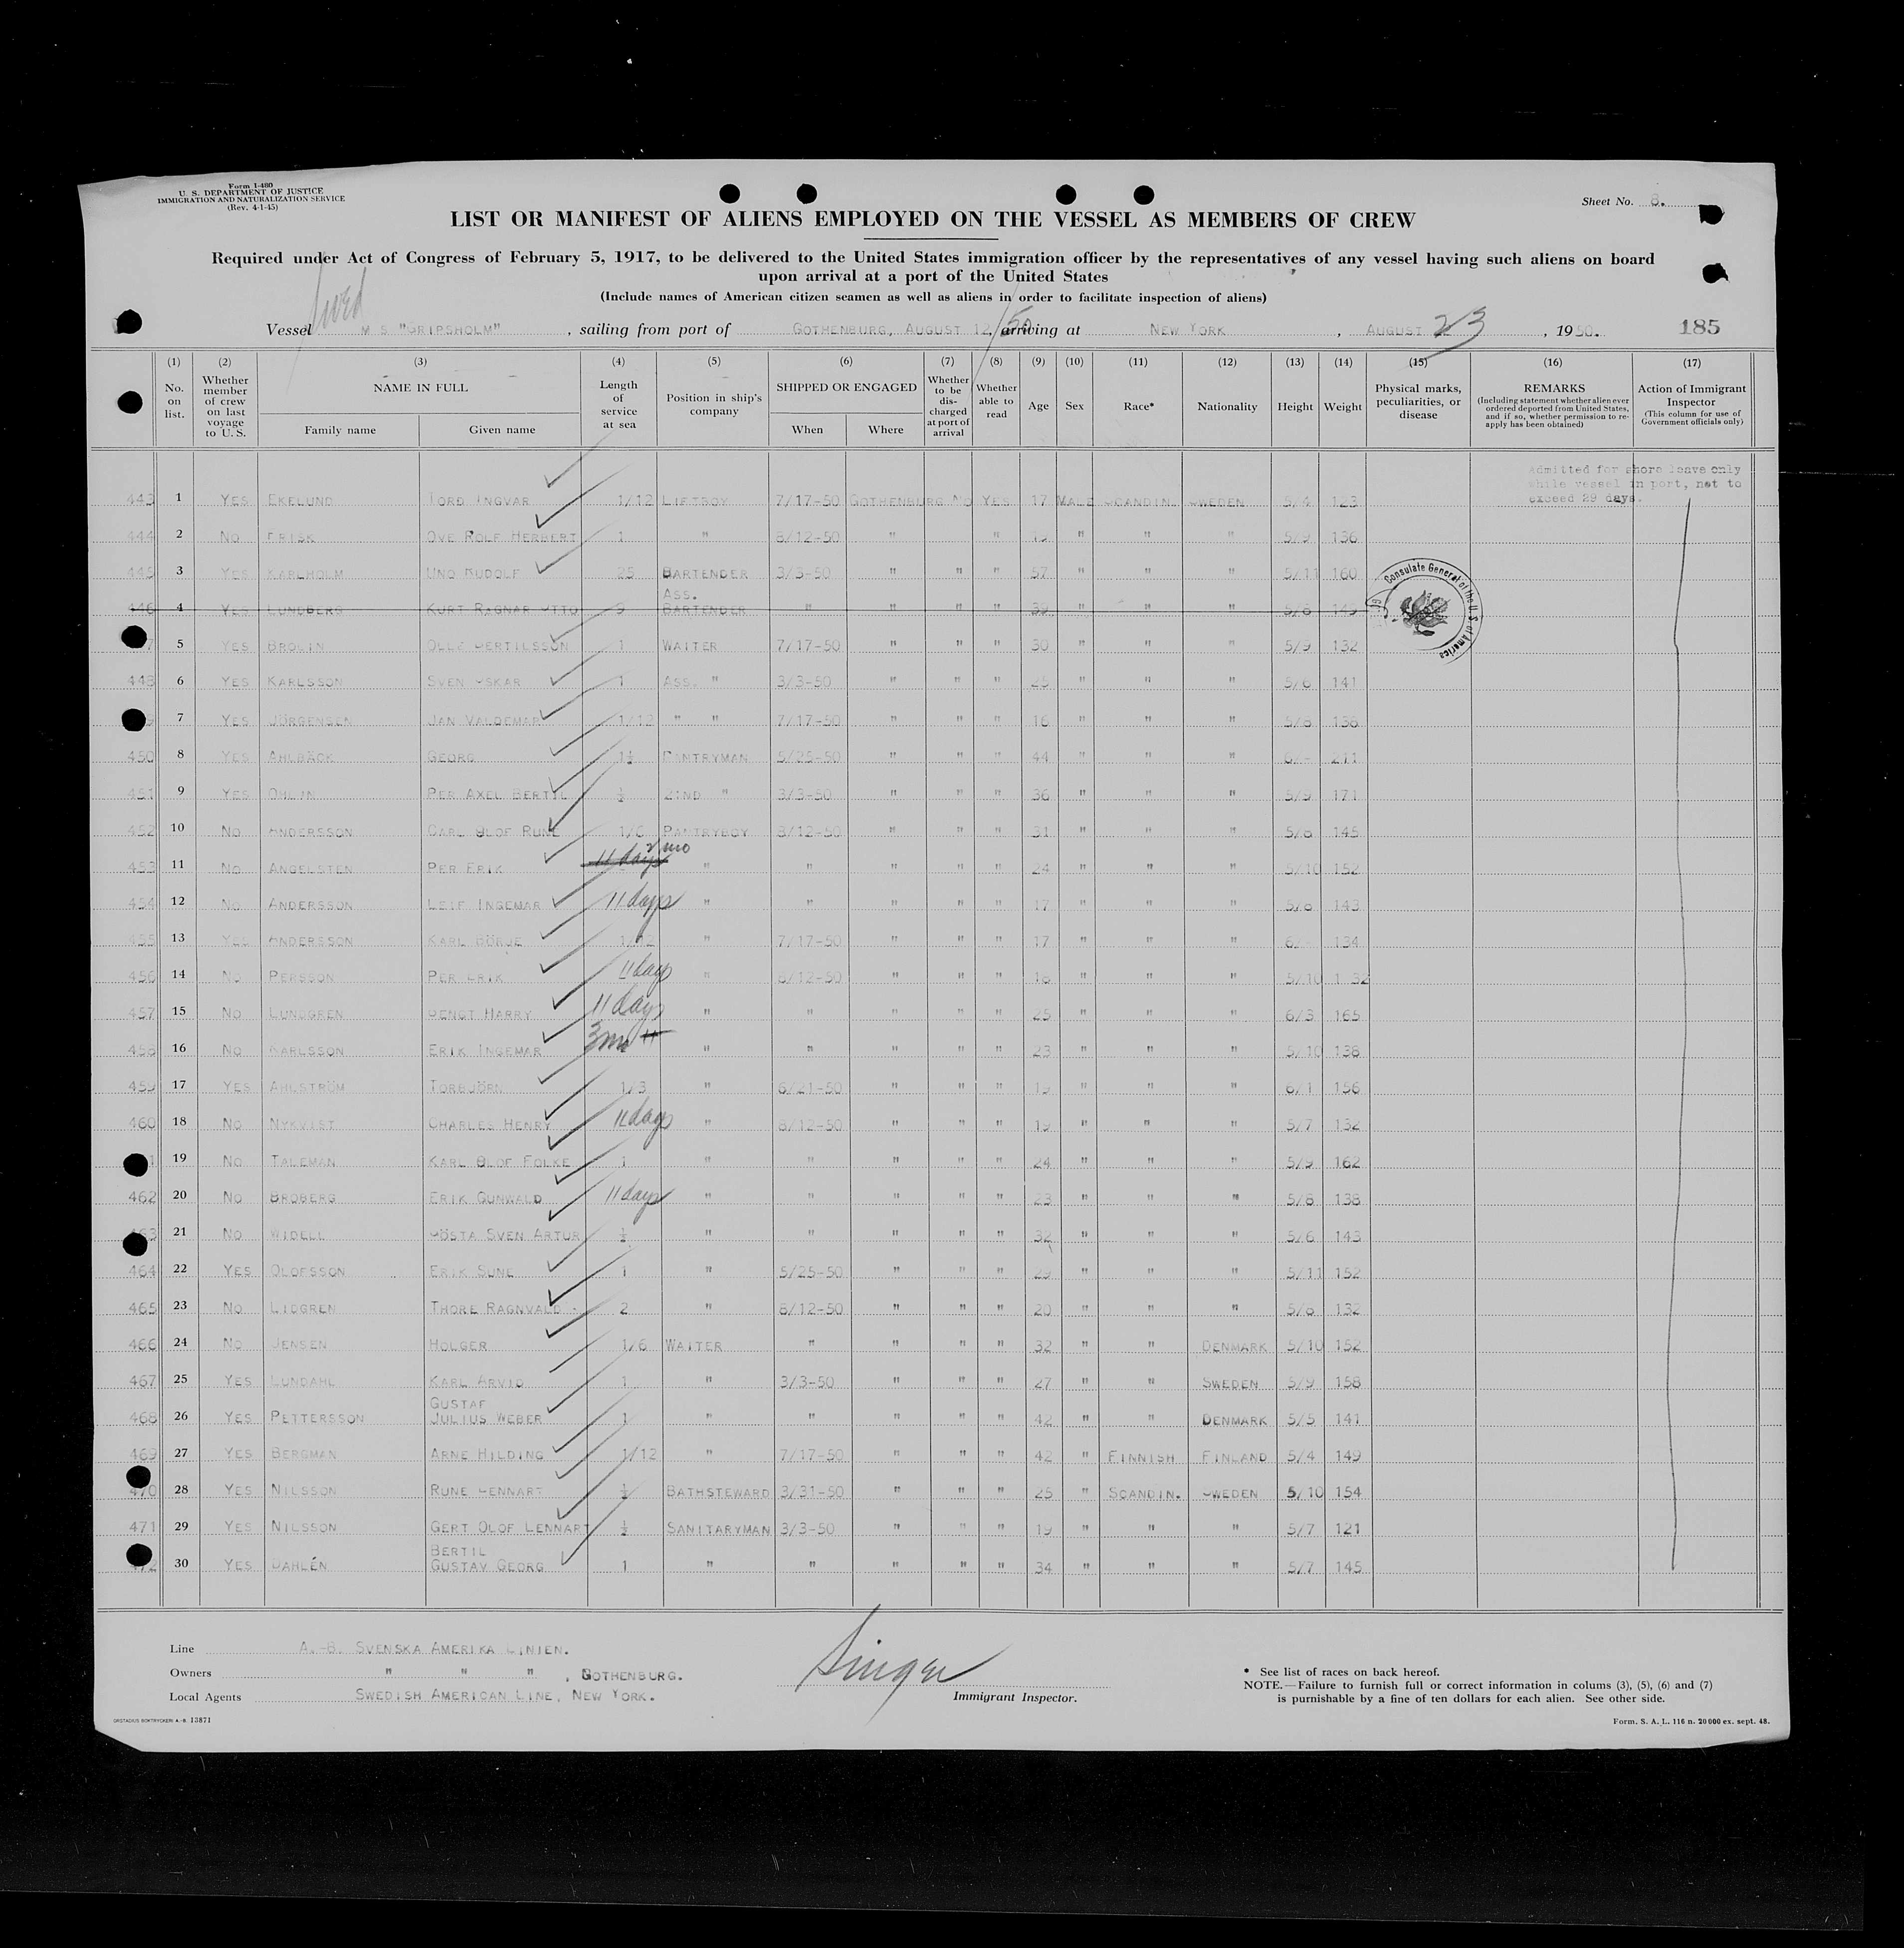 Form I-480
U. S. DEPARTMENT OF JUSTICE
IMMIGRATION AND NATURALIZATION SERVICE
(Rev. 4-1-45)
Sheet No. 8.
LIST OR MANIFEST OF ALIENS EMPLOYED ON THE VESSEL AS MEMBERS OF CREW
Required under Act of Congress of February 5, 1917, to be delivered to the United States immigration officer by the representatives of any vessel having such aliens on board
upon arrival at a port of the United States
(Include names of American citizen seamen as well as aliens in order to facilitate inspection of aliens)
Vessel M S "GRIPSHOLM", sailing from port of GOTHENBURG, AUGUST 12/50 arriving at NEW YORK, AUGUST 23, 1950. 185
(1) (2) (3) (4) (5) (6) (7) (8) (9) (10) (11) (12) (13) (14) (15) (16) (17)
No. on list. Whether member of crew on last voyage to U. S. NAME IN FULL Family name Given name Length of service at sea Position in ship's company SHIPPED OR ENGAGED When Where Whether to be discharged at port of arrival Whether able to read Age Sex Race* Nationality Height Weight Physical marks, peculiarities, or disease REMARKS (Including statement whether alien ever ordered deported from United States, and if so, whether permission to reapply has been obtained) Action of Immigrant Inspector (This column for use of Government officials only)
Admitted for shore leave only
while vessel in port, not to
exceed 29 days.
443 1 YES EKELUND TORD INGVAR 1/12 LIFTBOY 7/17-50 GOTHENBURG NO YES 17 MALE SCANDIN. SWEDEN 5/4 123
444 2 NO FRISK OVE ROLF HERBERT 1 " 8/12-50 " " " " " 5/9 136
445 3 YES KARLHOLM UNO RUDOLF 25 BARTENDER 3/3-50 " " " 57 " " " 5/11 160
446 4 YES LUNDBERG KURT RAGNAR OTTO 9 ASS. BARTENDER " " " " 39 " " " 5/8 149
5 YES BROLIN OLLE BERTILSSON 1 WAITER 7/17-50 " " " 30 " " " 5/9 132
448 6 YES KARLSSON SVEN OSKAR 1 ASS. " 3/3-50 " " " 25 " " " 5/6 141
7 YES JÖRGENSEN JAN VALDEMAR 1/12 " " 7/17-50 " " " 16 " " " 5/8 138
450 8 YES AHLBÄCK GEORG 1½ PANTRYMAN 5/25-50 " " " 44 " " " 6/- 211
451 9 YES OHLIN PER AXEL BERTIL ½ 2:ND " 3/3-50 " " " 36 " " " 5/9 171
452 10 NO ANDERSSON CARL OLOF RUNE 1/6 PANTRYBOY 8/12-50 " " " 31 " " " 5/8 145
453 11 NO ANGELSTEN PER ERIK 11 days 2 mo " " " " " 24 " " " 5/10 152
454 12 NO ANDERSSON LEIF INGEMAR 11 days " " " " " 17 " " " 5/8 143
455 13 YES ANDERSSON KARL BÖRJE 1/12 " 7/17-50 " " " 17 " " " 6/- 134
456 14 NO PERSSON PER ERIK 11 days " 8/12-50 " " " 18 " " " 5/10 132
457 15 NO LUNDGREN BENGT HARRY 11 days " " " " " 25 " " " 6/3 165
458 16 NO KARLSSON ERIK INGEMAR 3 mo " " " " " 23 " " " 5/10 138
459 17 YES AHLSTRÖM TORBJÖRN 1/3 " 6/21-50 " " " 19 " " " 6/1 156
460 18 NO NYKVIST CHARLES HENRY 11 days " 8/12-50 " " " 19 " " " 5/7 132
19 NO TALEMAN KARL OLOF FOLKE 1 " " " " " 24 " " " 5/9 162
462 20 NO BROBERG ERIK GUNWALD 11 days " " " " " 23 " " " 5/8 138
463 21 NO WIDELL GÖSTA SVEN ARTUR ½ " " " " " 32 " " " 5/6 143
464 22 YES OLOFSSON ERIK SUNE 1 " 5/25-50 " " " 29 " " " 5/11 152
465 23 NO LIDGREN THORE RAGNVALD 2 " 8/12-50 " " " 20 " " " 5/8 132
466 24 NO JENSEN HOLGER 1/6 WAITER " " " " 32 " " DENMARK 5/10 152
467 25 YES LUNDAHL KARL ARVID 1 " 3/3-50 " " " 27 " " SWEDEN 5/9 158
468 26 YES PETTERSSON GUSTAF JULIUS WEBER 1 " " " " " 42 " " DENMARK 5/5 141
469 27 YES BERGMAN ARNE HILDING 1/12 " 7/17-50 " " " 42 " FINNISH FINLAND 5/4 149
470 28 YES NILSSON RUNE LENNART ½ BATHSTEWARD 3/31-50 " " " 25 " SCANDIN. SWEDEN 5/10 154
471 29 YES NILSSON GERT OLOF LENNART ½ SANITARYMAN 3/3-50 " " " 19 " " " 5/7 121
30 YES DAHLÉN BERTIL GUSTAV GEORG 1 " " " " " 34 " " " 5/7 145
Consulate General of the U. S. of America
Line A.-B. SVENSKA AMERIKA LINIEN.
Owners " " " , GOTHENBURG.
Local Agents SWEDISH AMERICAN LINE, NEW YORK.
Singer
Immigrant Inspector.
* See list of races on back hereof.
NOTE.—Failure to furnish full or correct information in colums (3), (5), (6) and (7)
is punishable by a fine of ten dollars for each alien. See other side.
ORSTADIUS BOKTRYCKERI A.-B. 13871
Form. S. A. L. 116 n. 20 000 ex. sept. 48.